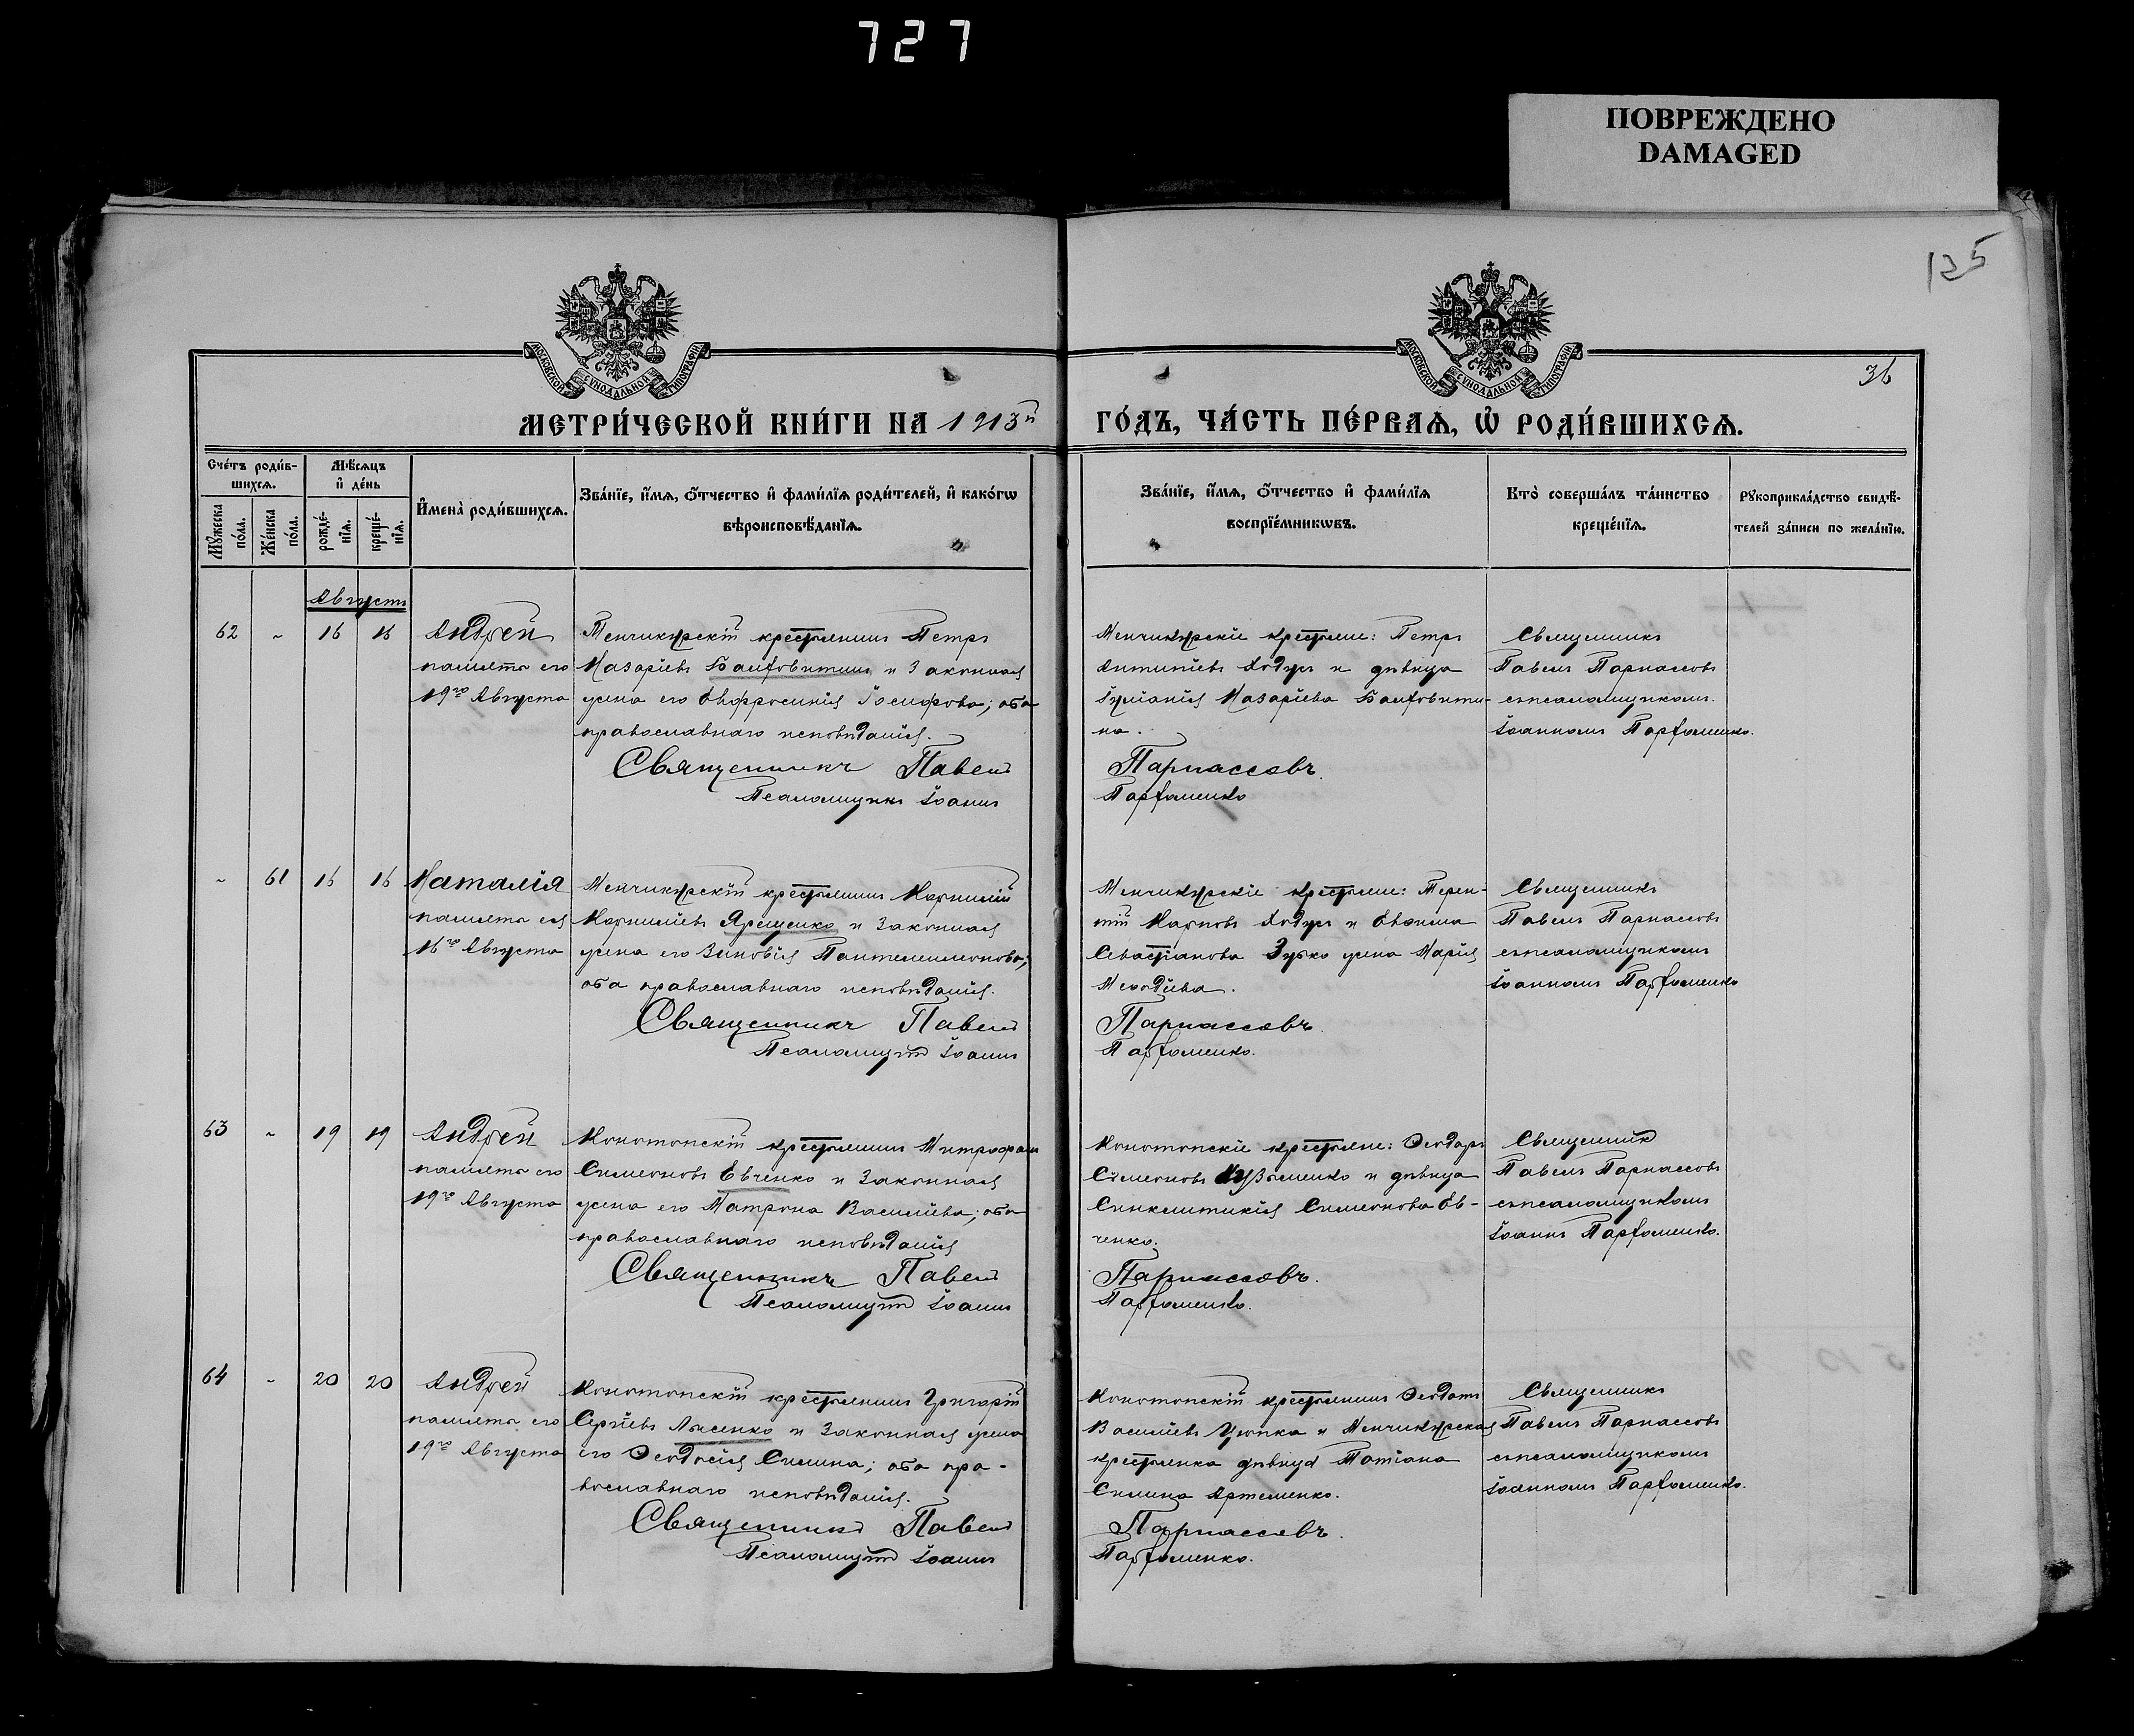 727
ПОВРЕЖДЕНО
DAMAGED
125
МОСКОВСКОЙ СУНОДАЛЬНОЙ ТИПОГРАФІИ
МОСКОВСКОЙ СУНОДАЛЬНОЙ ТИПОГРАФІИ
36
МЕТРИ́ЧЕСКОЙ КНИ́ГИ НА 1913й ГО́ДЪ, ЧА́СТЬ ПЕ́РВАѦ, Ѡ҆ РОДИ́ВШИХСѦ.
Сче́тъ роди́в-
шихсѧ.
Мѣ́сѧцъ
и҆ де́нь
И҆мена̀ роди́вшихсѧ.
Зва́нїе, и҆́мѧ, ѻ҆́тчество и҆ фами́лїѧ роди́телей, и҆ како́гѡ
вѣроисповѣ́данїѧ.
Зва́нїе, и҆́мѧ, ѻ҆́тчество и҆ фами́лїѧ
воспрїе́мникѡвъ.
Кто̀ соверша́лъ та́инство
креще́нїѧ.
Рꙋкоприкла́дство свидѣ́-
телей за́писи по жела́нїю.
Мꙋ́жеска
по́ла.
Же́нска
по́ла.
рожде́-
нїѧ.
креще́-
нїѧ.
Августъ
62 ~ 16 16
Андрей
память его
19го Августа
Менчикурскій крестьянинъ Петръ
Назаріевъ и законная
жена его Евфросинія Іосифова; оба
православнаго исповѣданія.
Священникъ Павелъ
Псаломщикъ Іоаннъ
Менчикурскіе крестьяне: Петръ
Антипіевъ Ходусъ и дѣвица
Іуліанія Назаріева
на.
Парнассовъ.
Парфоменко
Священникъ
Павелъ Парнассовъ
съ псаломщикомъ
Іоанномъ Парфоменко.
~ 61 16 16
Наталія
память ея
16го Августа
Менчикурскій крестьянинъ Корнилій
Корниліевъ Ярещенко и законная
жена его Зиновія Пантелеимонова;
оба православнаго исповѣданія.
Священникъ Павелъ
Псаломщикъ Іоаннъ
Менчикурскіе крестьяне: Терен-
тій Карповъ Ходусъ и
Севастіанова Зубко жена Марія
Меѳодіева.
Парнассовъ.
Парфоменко.
Священникъ
Павелъ Парнассовъ
съ псаломщикомъ
Іоанномъ Парфоменко
63 ~ 19 19
Андрей
память его
19го Августа
Конотопскій крестьянинъ Митрофанъ
Симеоновъ Евченко и законная
жена его Матрона Василіева; оба
православнаго исповѣданія
Священникъ Павелъ
Псаломщикъ Іоаннъ
Конотопскіе крестьяне: Ѳеодоръ
Симеоновъ Кузьменко и дѣвица
Синклитикія Симеонова Ев-
ченко.
Парнассовъ.
Парфоменко.
Священникъ
Павелъ Парнассовъ
съ псаломщикомъ
Іоаннъ Парфоменко.
64 - 20 20
Андрей
память его
19го Августа
Конотопскій крестьянинъ Григорій
Сергіевъ Лысенко и законная жена
его Ѳеодосія Силина; оба пра-
вославнаго исповѣданія.
Священникъ Павелъ
Псаломщикъ Іоаннъ
Конотопскій крестьянинъ Ѳеодотъ
Василіевъ Цюпка и Менчикурская
крестьянка дѣвица Татіана
Силина Артеменко.
Парнассовъ.
Парфоменко.
Священникъ
Павелъ Парнассовъ
съ псаломщикомъ
Іоанномъ Парфоменко.